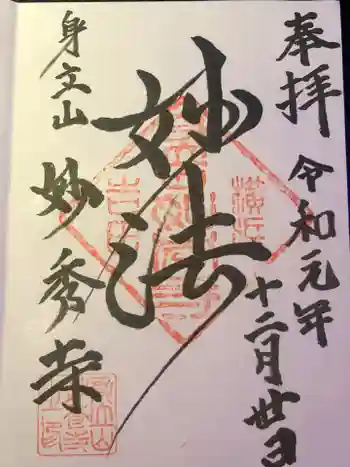 奉拝
令和元年
十二月廿日
妙法
身文山
妙秀寺